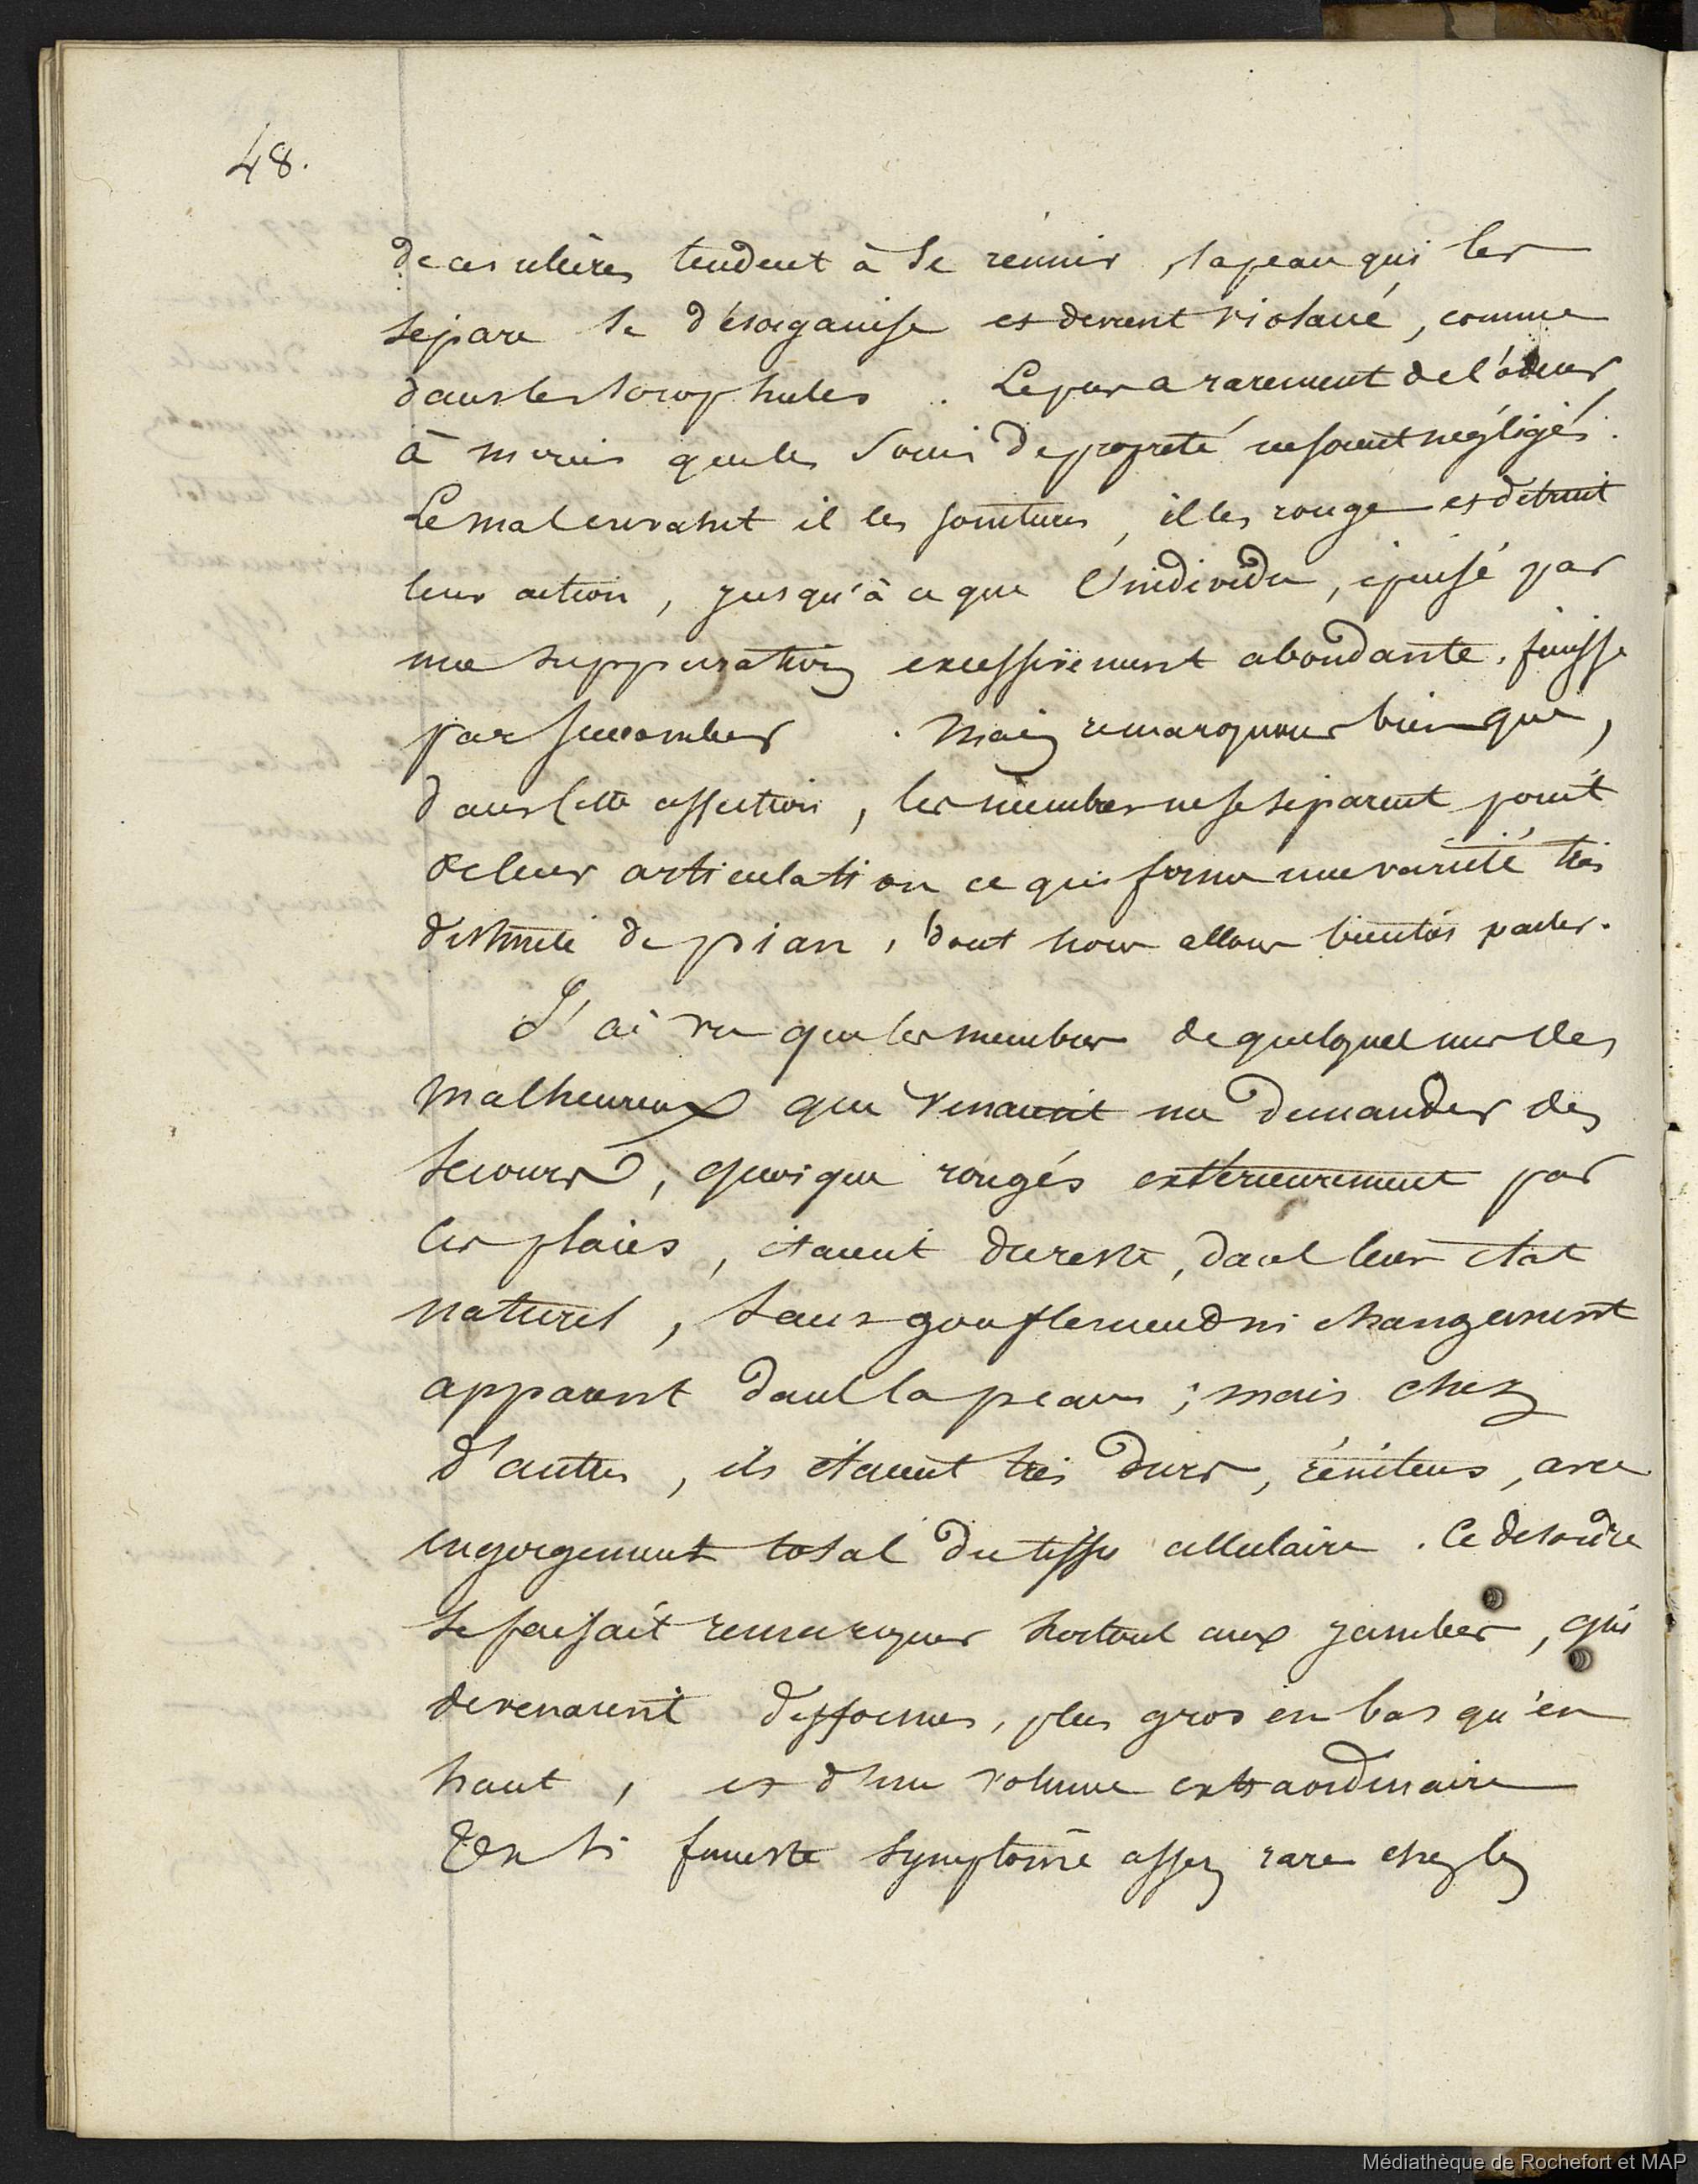 48.
de ces ulcères tendent à se réunir, la peau qui les
sépare se désorganise et devient violacé, comme
dans les scrophules. Le pus a rarement de l'odeur,
à moins que les soins de propreté ne soient négligés.
Le mal envahit il les jointures, il les ronge et détruit
leur action, jusqu'à ce que l'individu, épuisé par
une suppuration excessivement abondante, finisse
par succomber. Mais remarquons bien que,
dans cette affection, les membres ne se séparent point
de leur articulation ce qui forme une variété très
distincte de pian, dont nous allons bientôt parler.
J'ai vu que les membres de quelques uns des
malheureux que venaient me demander des
secours, quoique rongés extérieurement par
les plaies, étaient du reste, dans leur état
naturel, sans gonflement ni changement
apparent dans la peau ; mais chez
d'autres, ils étaient très durs, rénitens, avec
engorgement total du tissu cellulaire. Ce désordre
se faisait remarquer surtout aux jambes, qui
devenaient difformes, plus gros en bas qu'en
haut, et d'un volume extraordinaire
Un si funeste symptôme assez rare chez les
Médiathèque de Rochefort et MAP